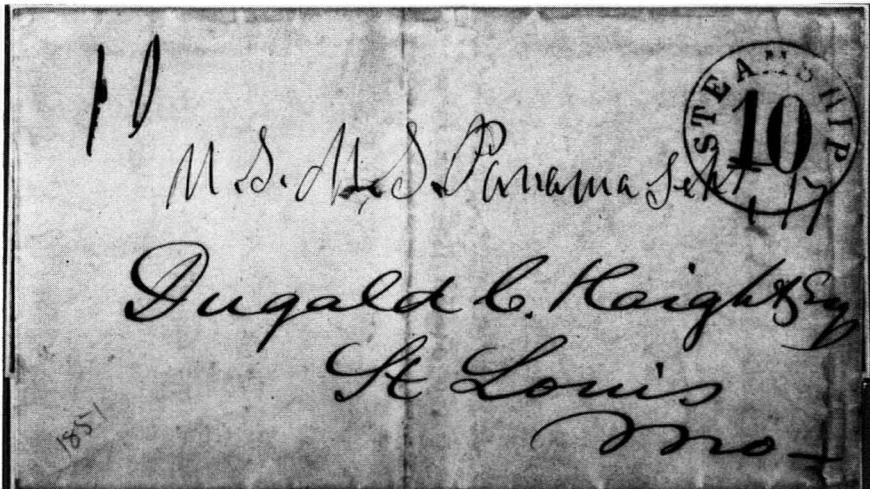 10
STEAMSHIP
10
U.S.M.S. Panama Sept 17
Dugald C. Haight Esq
St Louis
Mo
1851